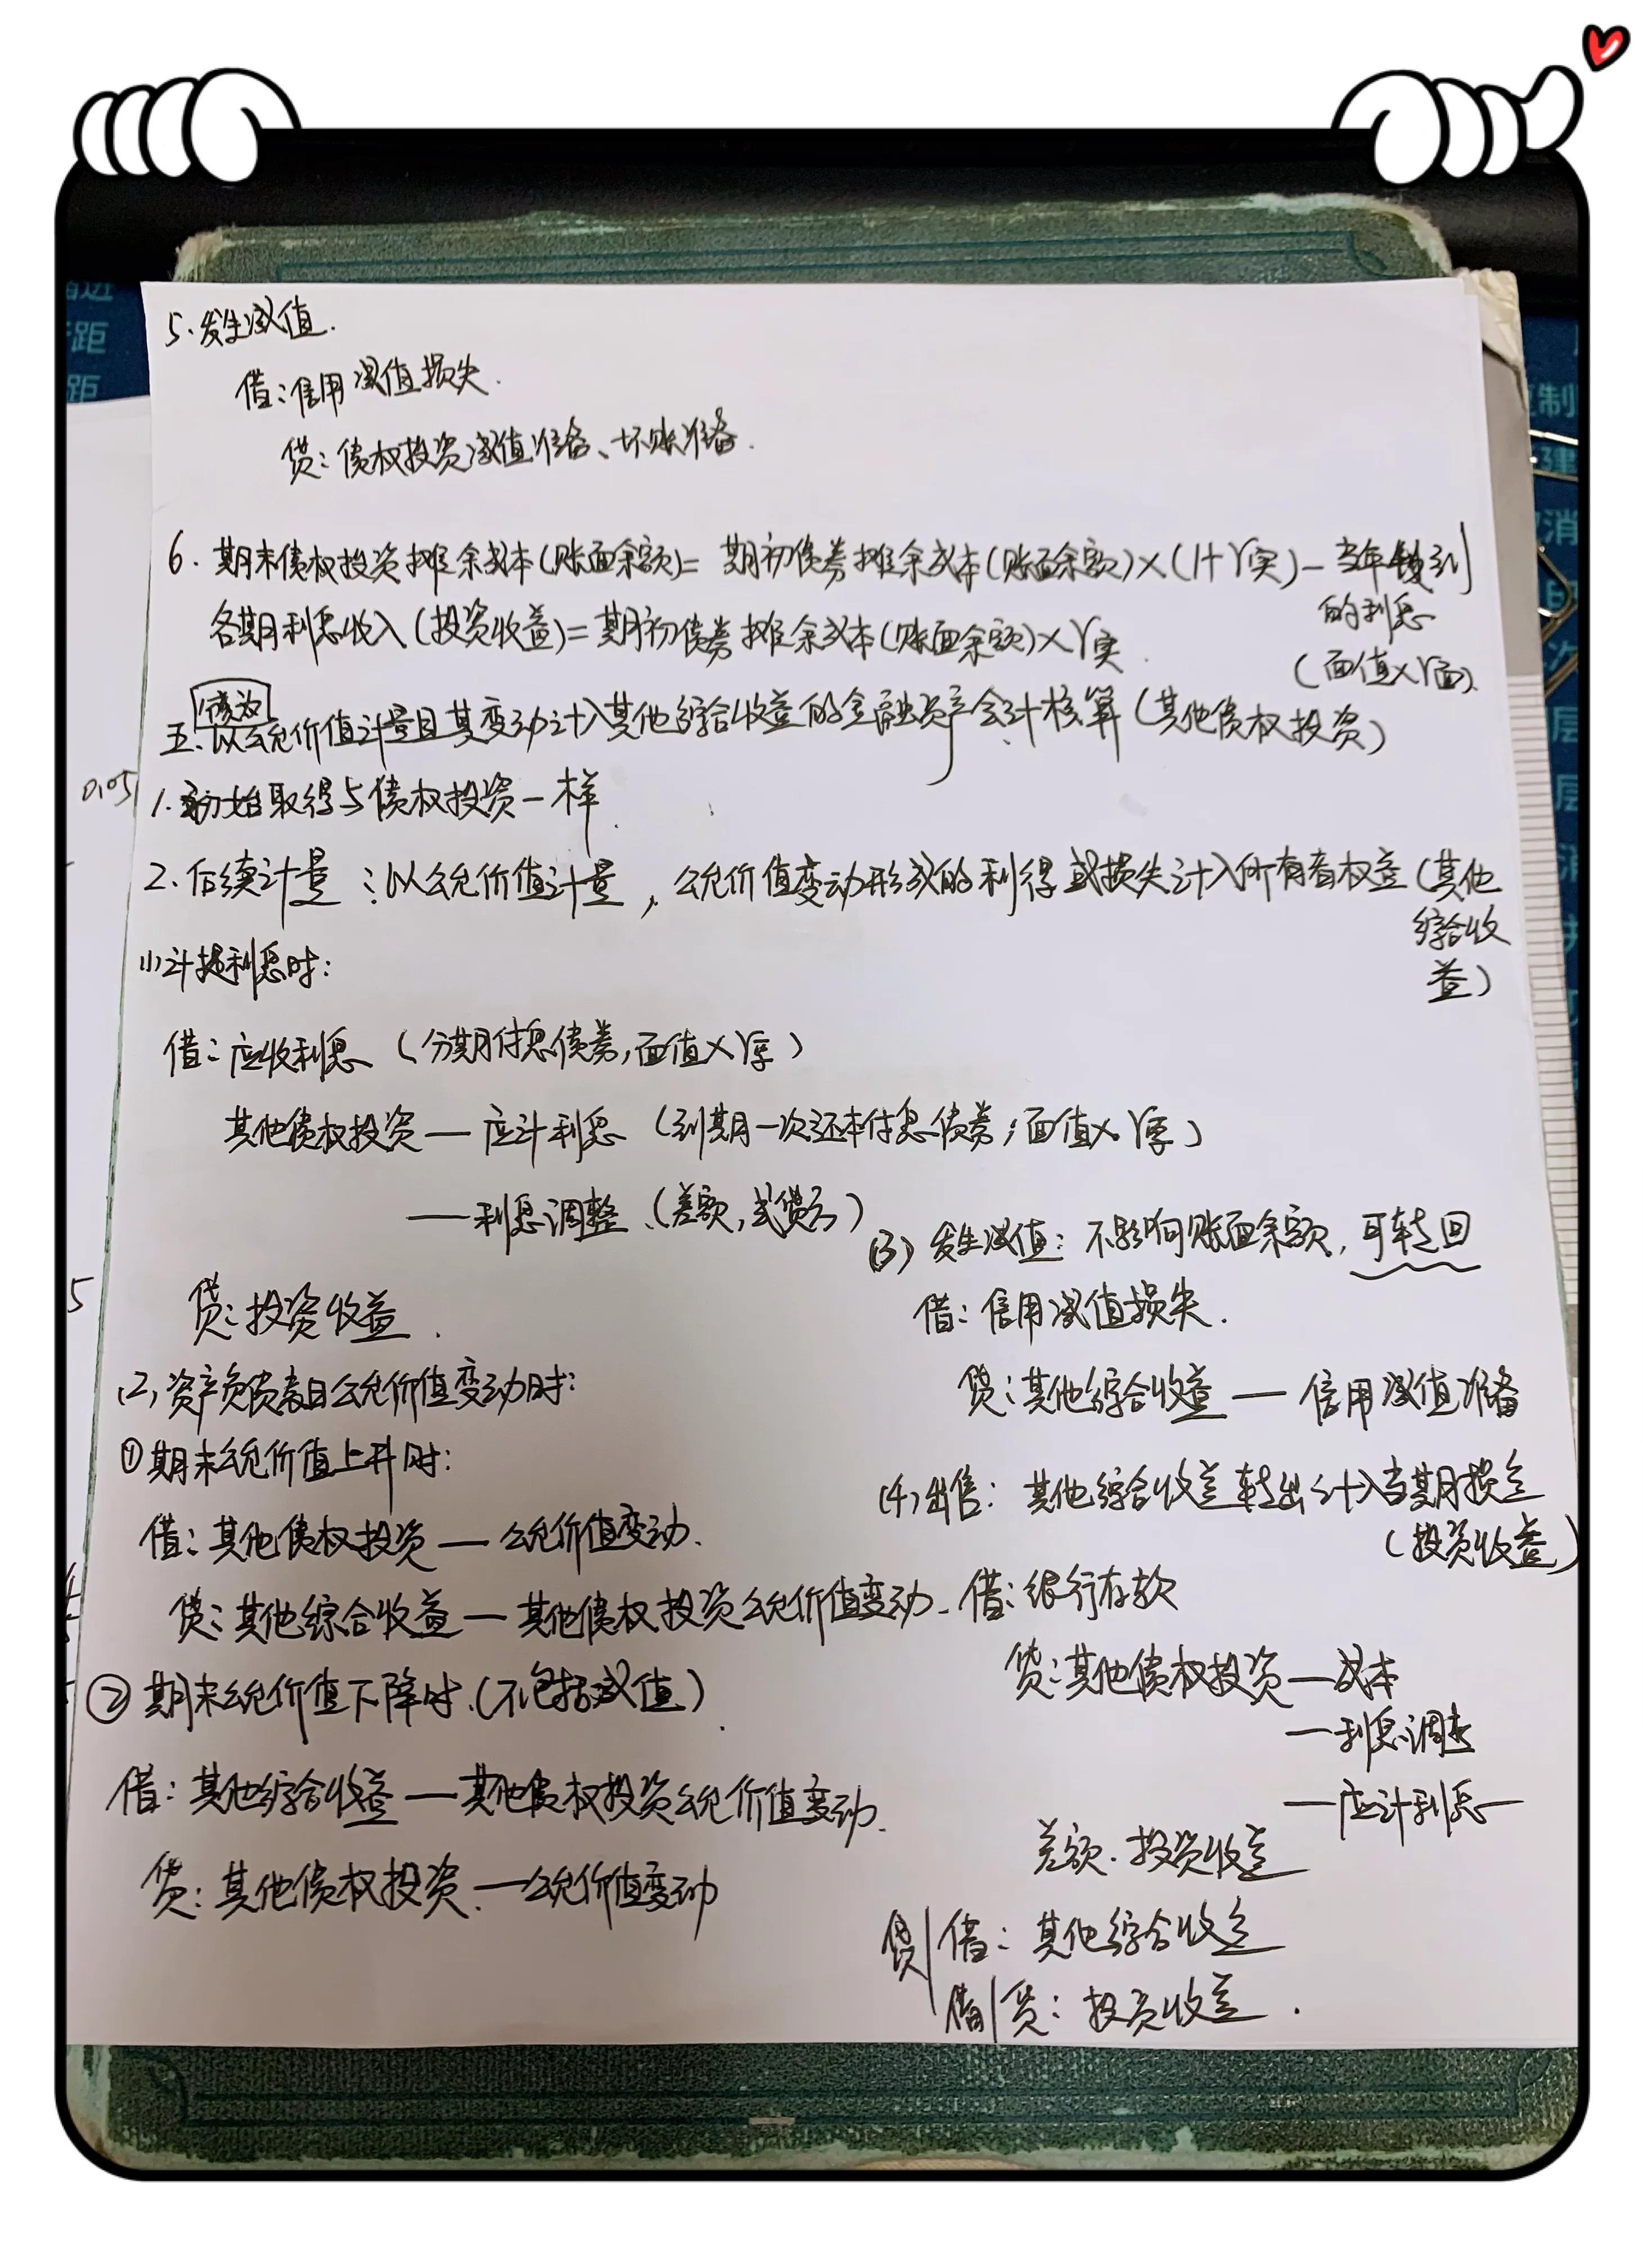 5.发生减值.
借:信用减值损失.
贷:债权投资减值准备、坏账准备.
6.期末债权投资摊余成本(账面余额)=期初债券摊余成本(账面余额)×(1+r实)-当年收到
的利息
(面值×r面).
各期利息收入(投资收益)=期初债券摊余成本(账面余额)×r实.
债放
五.以公允价值计量且其变动计入其他综合收益的金融资产会计核算(其他债权投资)
0.05
1.初始取得与债权投资一样.
2.后续计量:以公允价值计量,公允价值变动形成的利得或损失计入所有者权益(其他
综合收
益)
(1)计提利息时:
借:应收利息(分期付息债券,面值×r票)
其他债权投资—应计利息(到期一次还本付息债券,面值×r票)
—利息调整(差额,或贷方)
5
贷:投资收益.
(2)资产负债表日公允价值变动时:
①期末公允价值上升时:
借:其他债权投资—公允价值变动.
贷:其他综合收益—其他债权投资公允价值变动.
②期末公允价值下降时.(不包括减值).
借:其他综合收益—其他债权投资公允价值变动.
贷:其他债权投资—公允价值变动
(3)发生减值:不影响账面余额,可转回
借:信用减值损失.
贷:其他综合收益—信用减值准备
(4)出售:其他综合收益转出计入当期损益
(投资收益)
借:银行存款
贷:其他债权投资—成本
—利息调整
—应计利息
差额.投资收益
贷/借:其他综合收益
借/贷:投资收益.